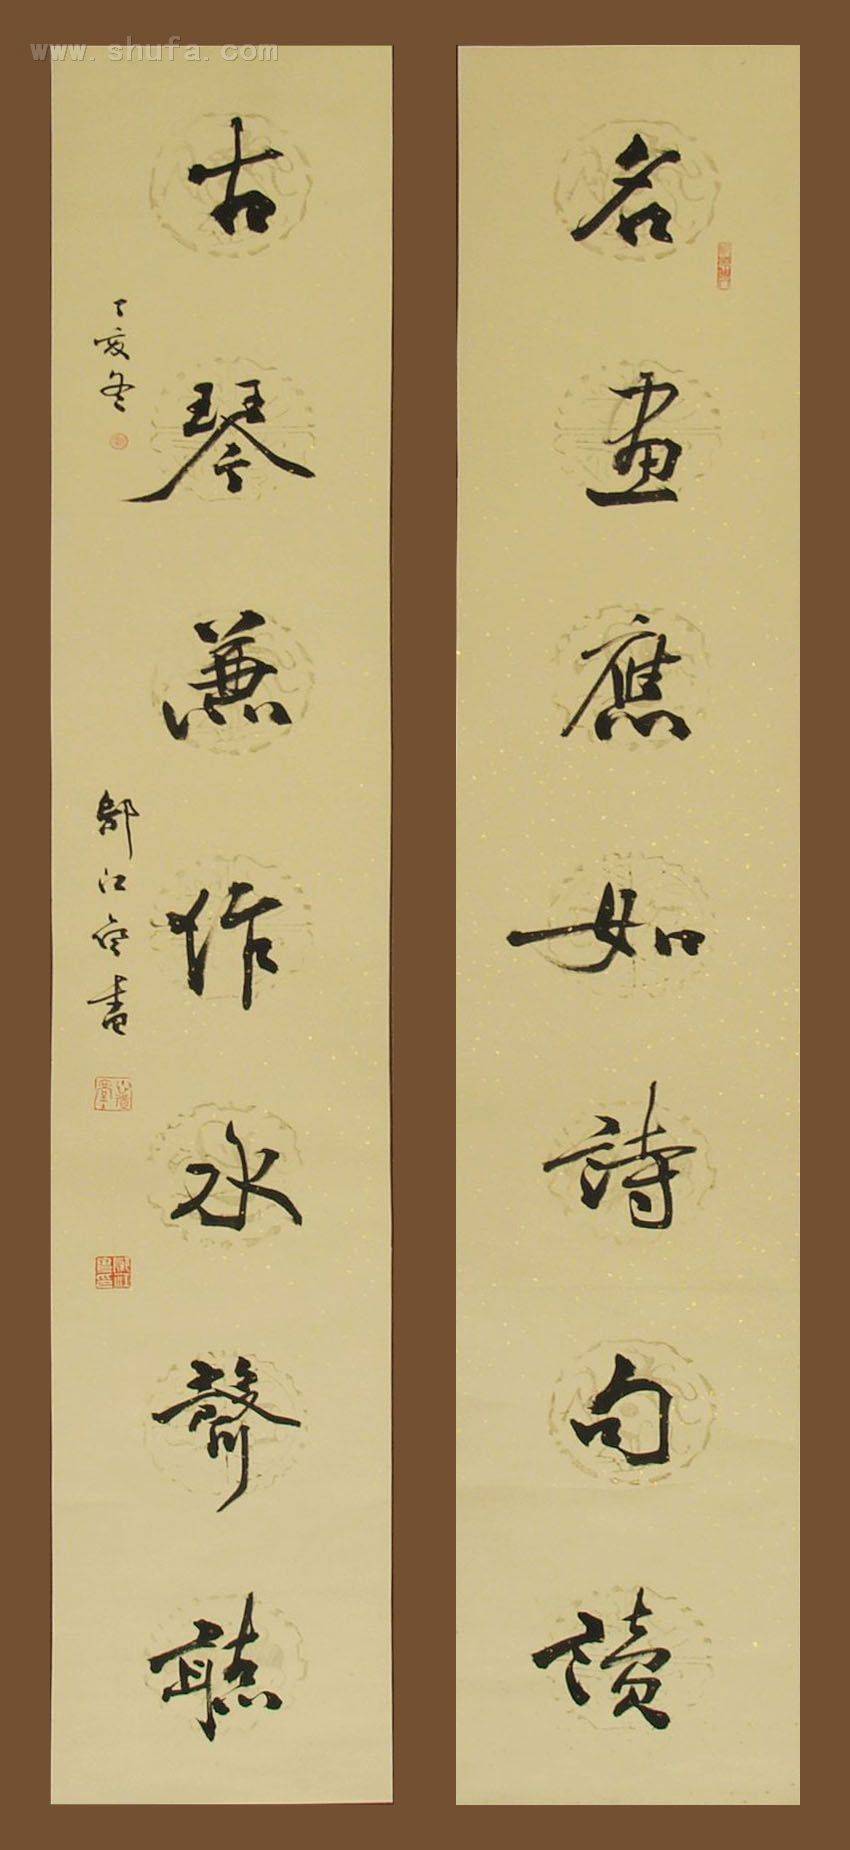 www.shufa.com
名畫應如詩句讀
古琴兼作水聲聽
丁亥冬
江
書